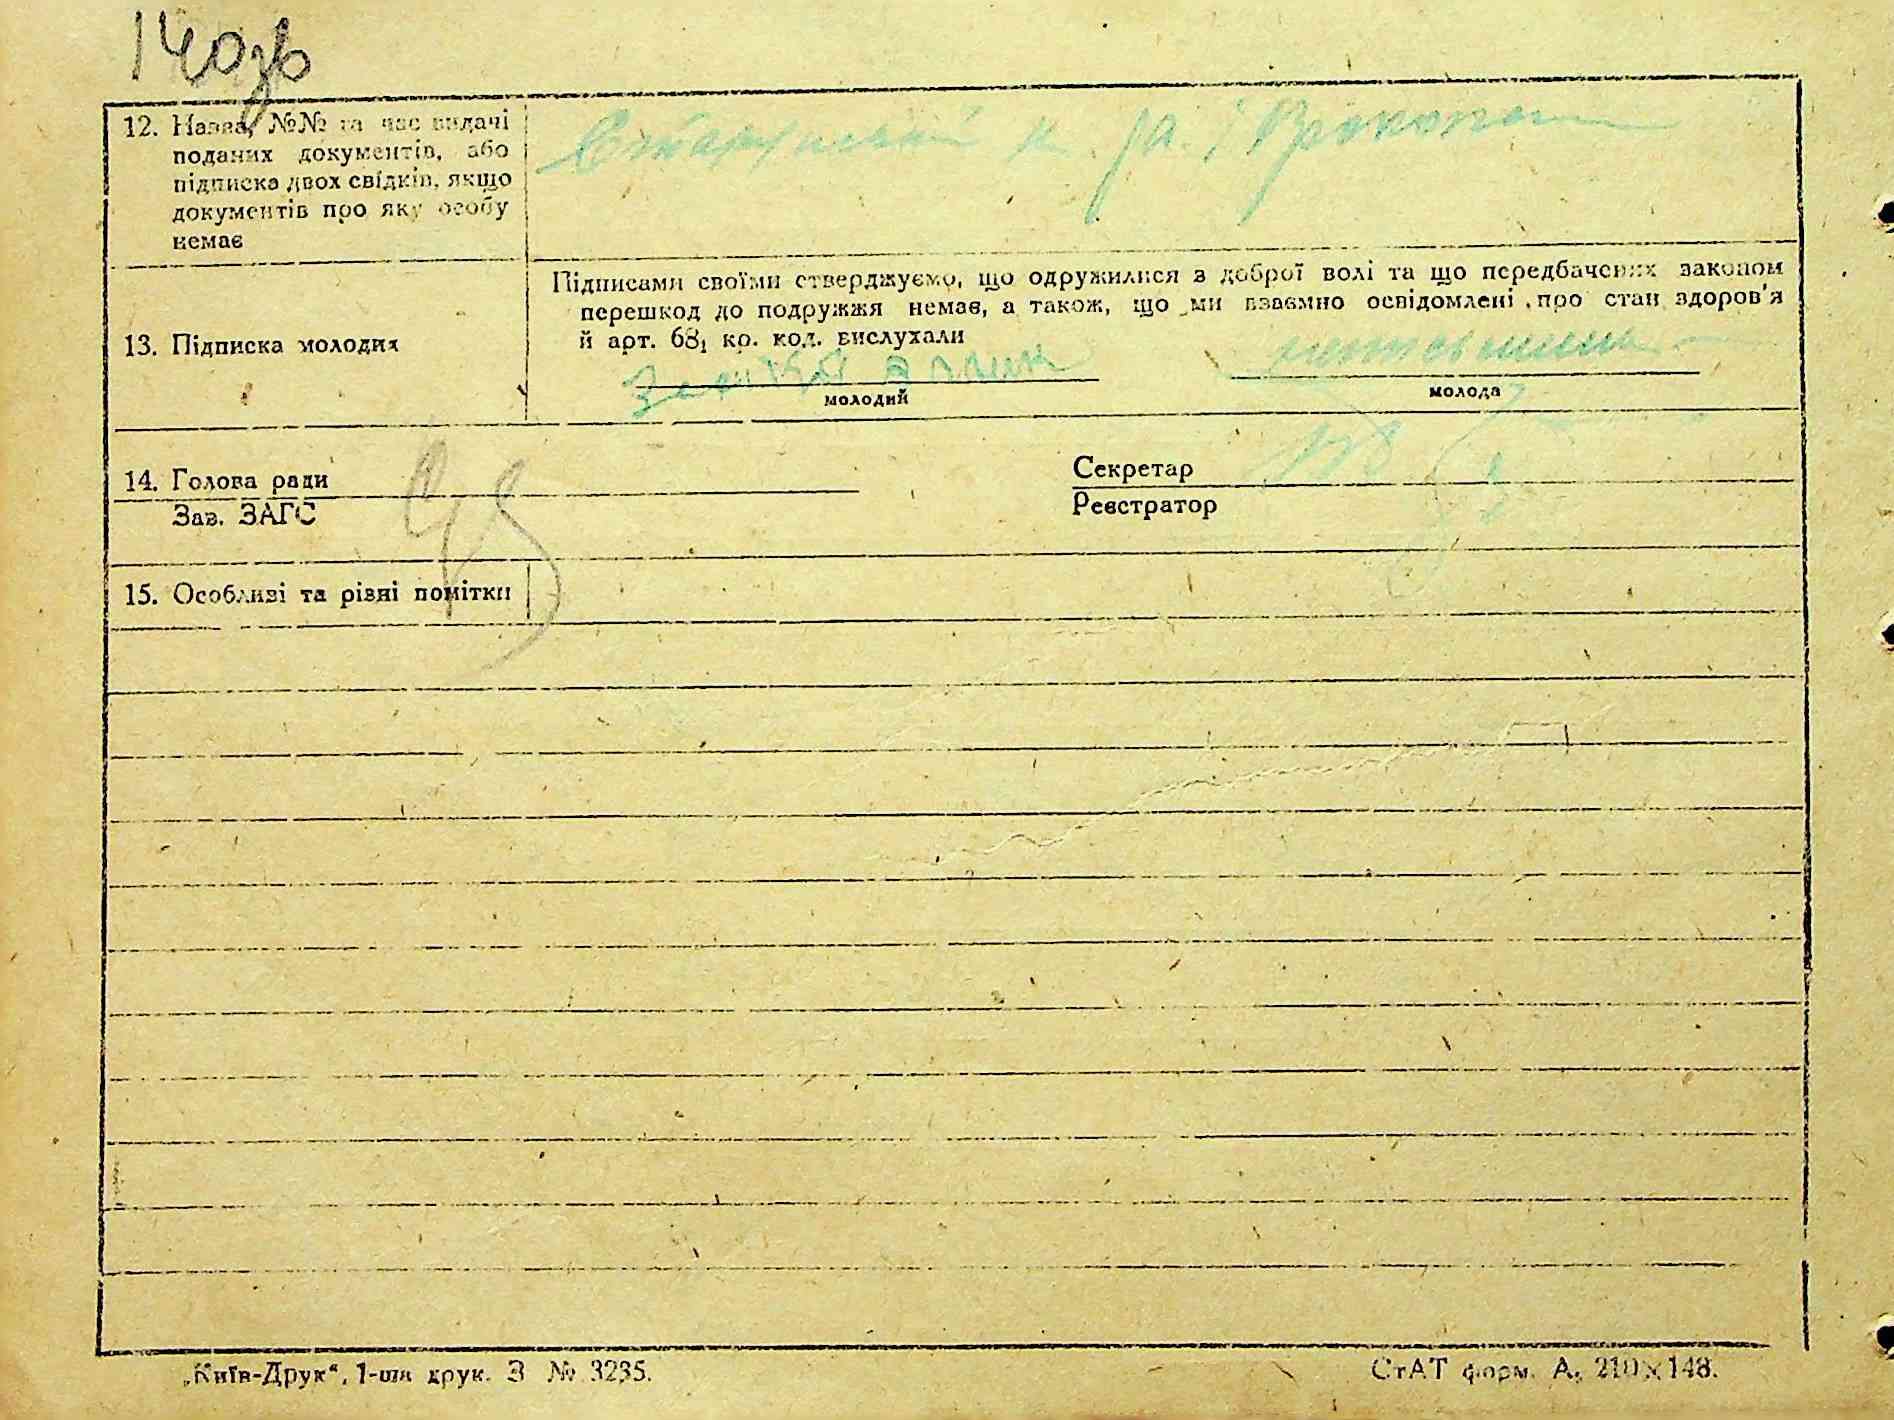 140зв
12. Назва, №№ та час видачі
поданих документів, або
підписка двох свідків, якщо
документів про яку особу
немає
Підписами своїми стверджуємо, що одружилися з доброї волі та що передбачених законом
перешкод до подружжя немає, а також, що ми взаємно освідомлені про стан здоров'я
й арт. 68₁ кр. код. вислухали
13. Підписка молодих
молодий
молода
14. Голова ради
Секретар
Зав. ЗАГС
Реєстратор
15. Особливі та різні помітки
„Київ-Друк“, 1-ша друк. З № 3235.
СтАТ форм. А₅ 210×148.